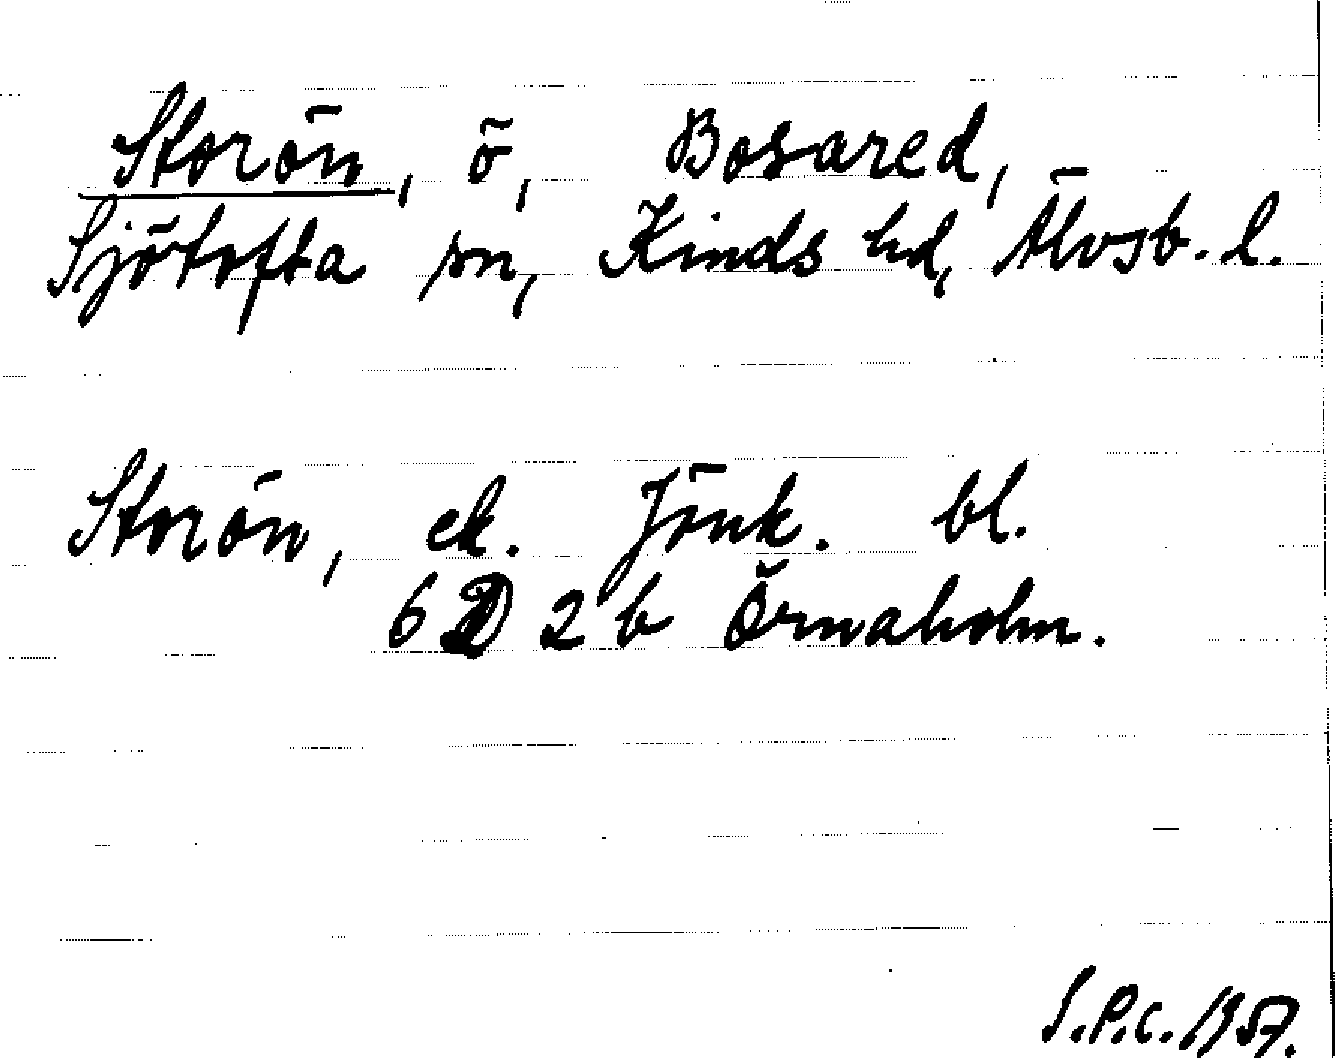 Storön, ö, Bosared,
Sjötofta sn, Kinds hd, Älvsb. l.
Storön, ek. Jönk. bl.
6 D 2 b Örnaholm.
S.P.C. 1957.